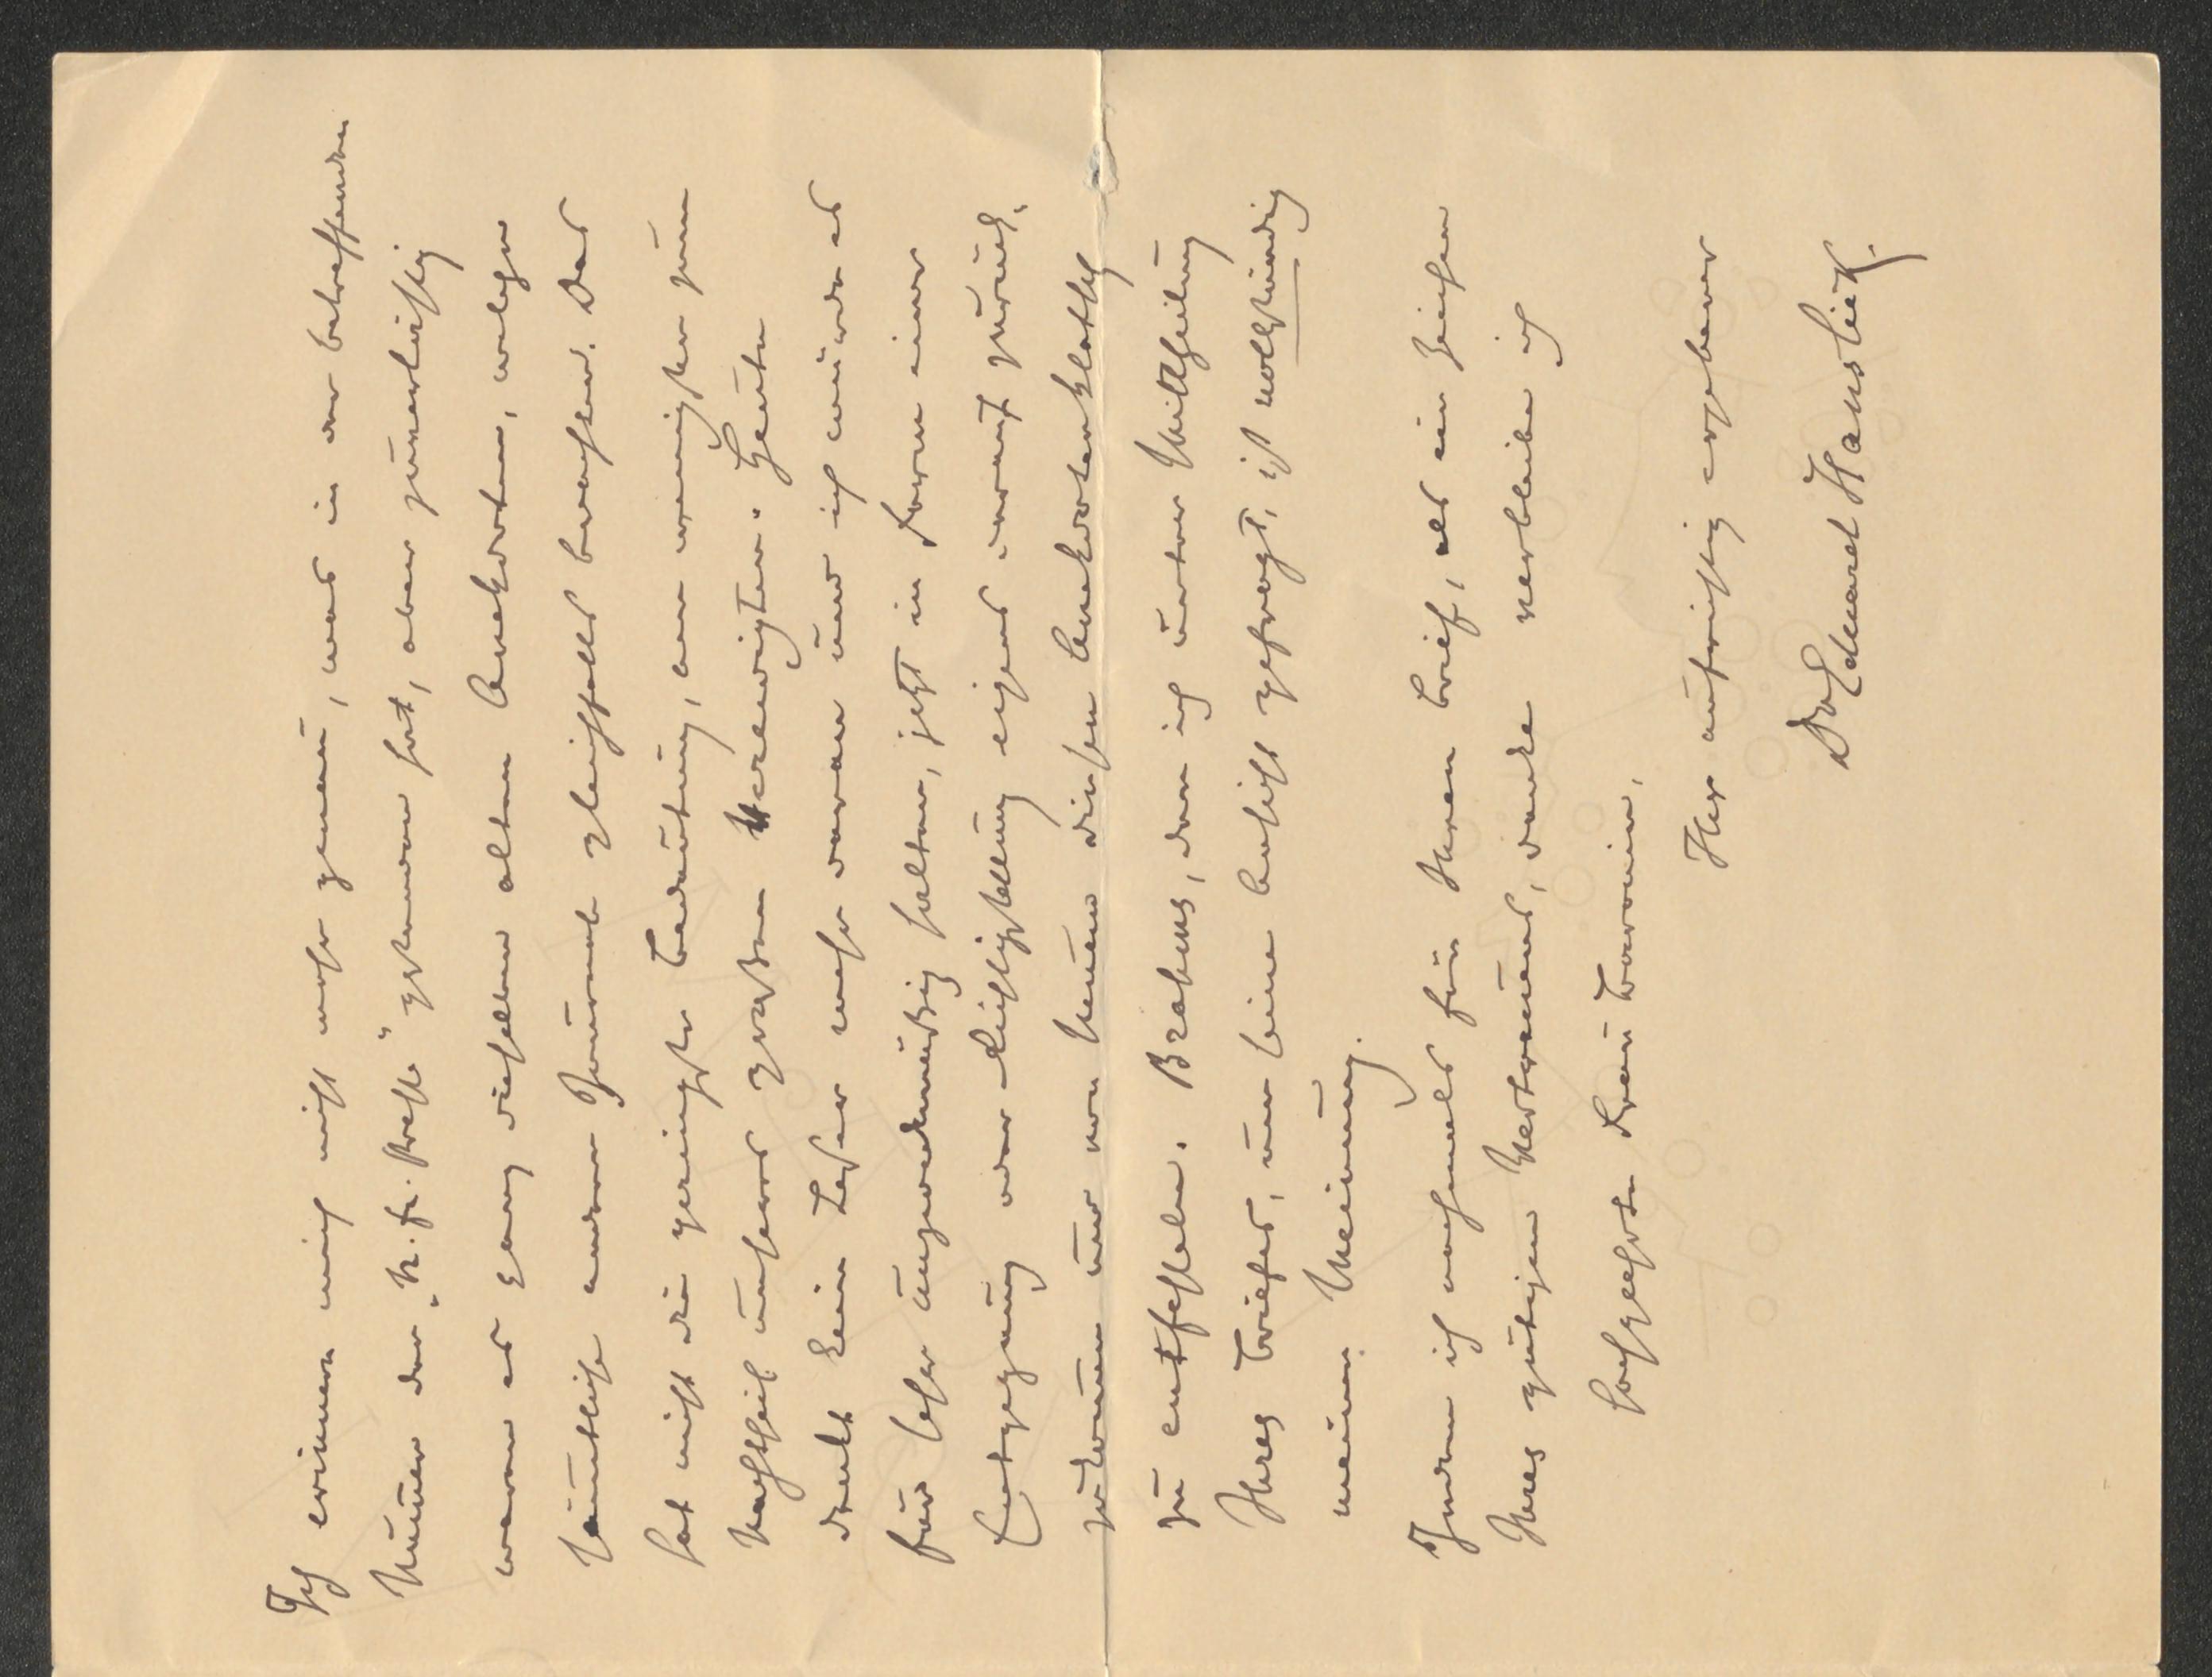 Ich erinnere mich nicht mehr genau, was in der betreffenden
Numer der „N. fr. Presse" gestanden hat, aber zuverlässig
waren es ganz dieselben alten Anekdoten, welche
sämtliche andere Journale gleichfalls brachten. Das
hat nicht die geringste Bedeutung, am wenigsten zum
Nachtheil unseres großen Verewigten. Heute
denkt kein Leser mehr daran und ich würde es
für sehr unzweckmäßig halten, jetzt in Form einer
Entgegnung oder Richtigstellung eigens darauf zurück-
zukommen und von Neuem diesen Anekdotenklatsch
zu entfesseln. Brahms, den ich unter Mittheilung
Ihres Briefes, um seine Ansicht gefragt, ist vollständig
meiner Meinung.
Indem ich nochmals für Ihren Brief, als ein Zeichen
Ihres gütigen Vertrauens, danke verbleibe ich
hochgeehrte Frau Baronin,
Ihr aufrichtig ergebener
Dr Eduard Hanslick.